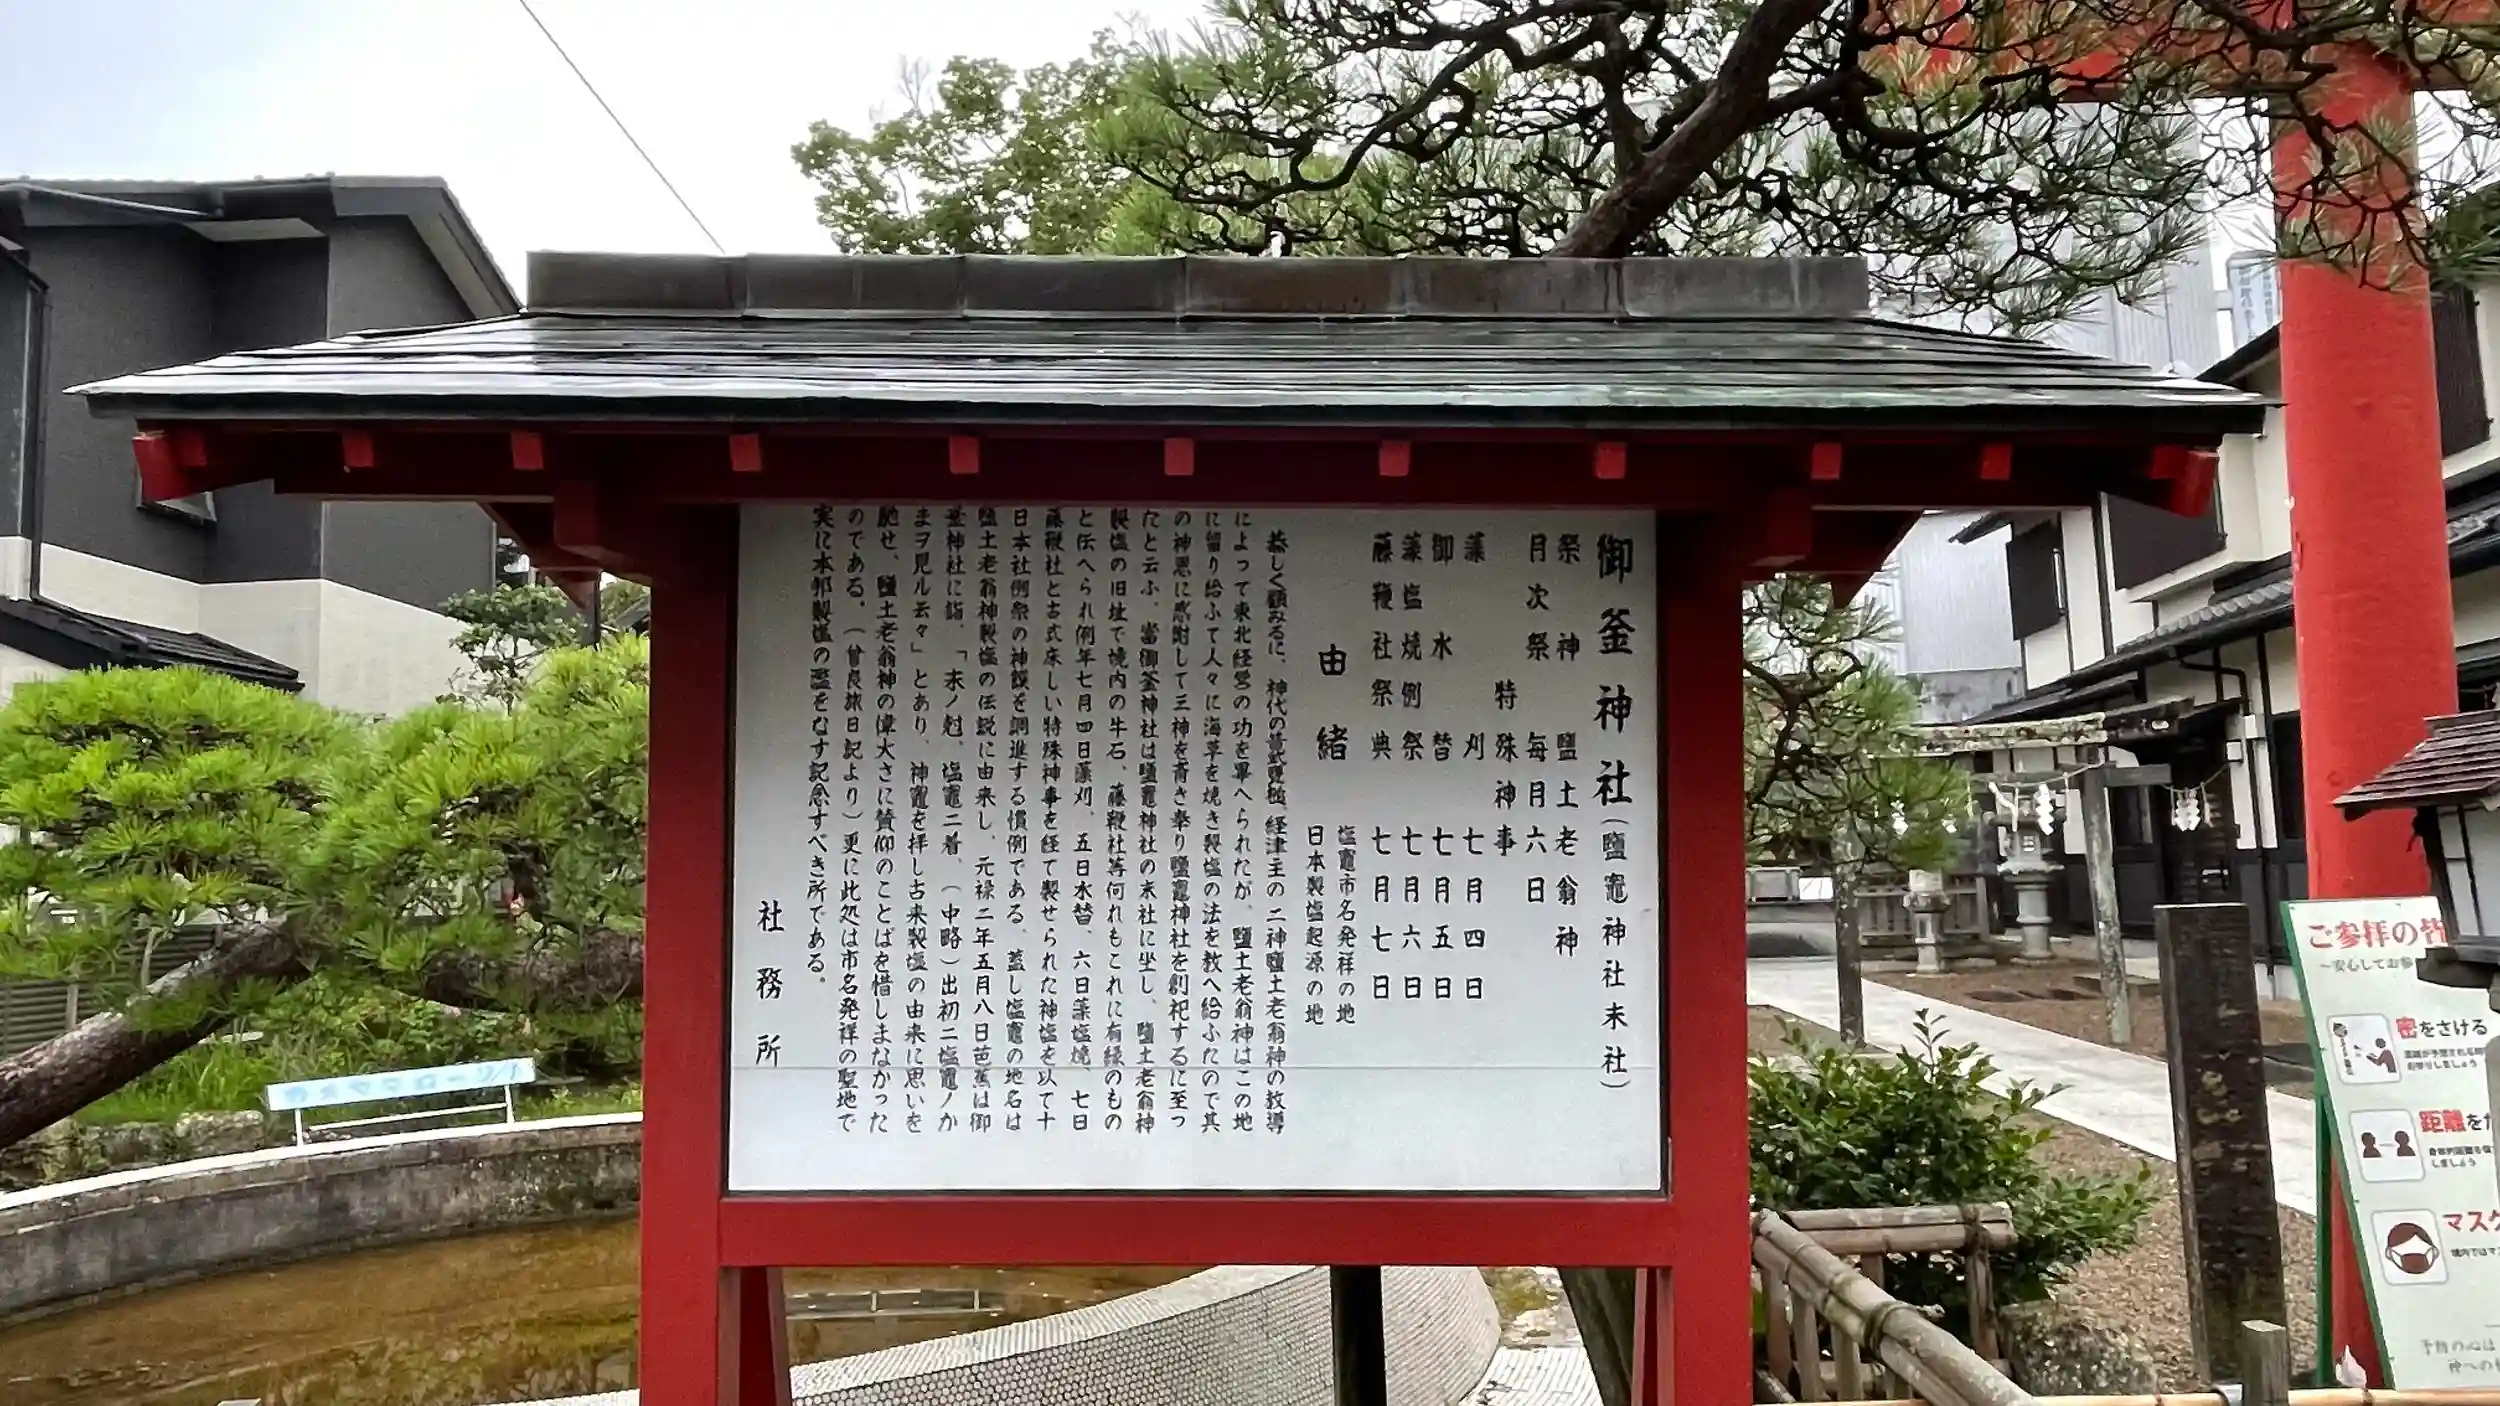 御釜神社（鹽竈神社末社）
祭神　鹽土老翁神
月次祭　毎月六日
特殊神事
藻刈　七月四日
御水替　七月五日
藻塩焼例祭　七月六日
藤鞭社祭典　七月七日
由緒
塩竈市名発祥の地
日本製塩起源の地
恭しく顧みるに、神代の昔武甕槌、経津主の二神鹽土老翁神の教導
によって東北経営の功を畢へられたが、鹽土老翁神はこの地
に留り給ふて人々に海草を焼き製塩の法を教へ給ふたので其
の神恩に感謝して三神を斎き奉り鹽竈神社を創祀するに至っ
たと云ふ、當御釜神社は鹽竈神社の末社に坐し、鹽土老翁神
製塩の旧址で境内の牛石、藤鞭社等何れもこれに有縁のもの
と伝へられ例年七月四日藻刈、五日水替、六日藻塩焼、七日
藤鞭社と古式床しい特殊神事を経て製せられた神塩を以て十
日本社例祭の神饌を調進する慣例である、蓋し塩竈の地名は
鹽土老翁神製塩の伝説に由来し、元禄二年五月八日芭蕉は御
釜神社に詣、「末ノ尅、塩竈二着、（中略）出初二塩竈ノか
まヲ見ル云々」とあり、神竈を拝し古来製塩の由来に思いを
馳せ、鹽土老翁神の偉大さに賛仰のことばを惜しまなかった
のである、（曽良旅日記より）更に此処は市名発祥の聖地で
実に本邦製塩の濫をなす記念すべき所である。
社務所
ご参拝の皆
～安心してお参
密をさける
距離を
しましょう
マスク
予防の心は
神への